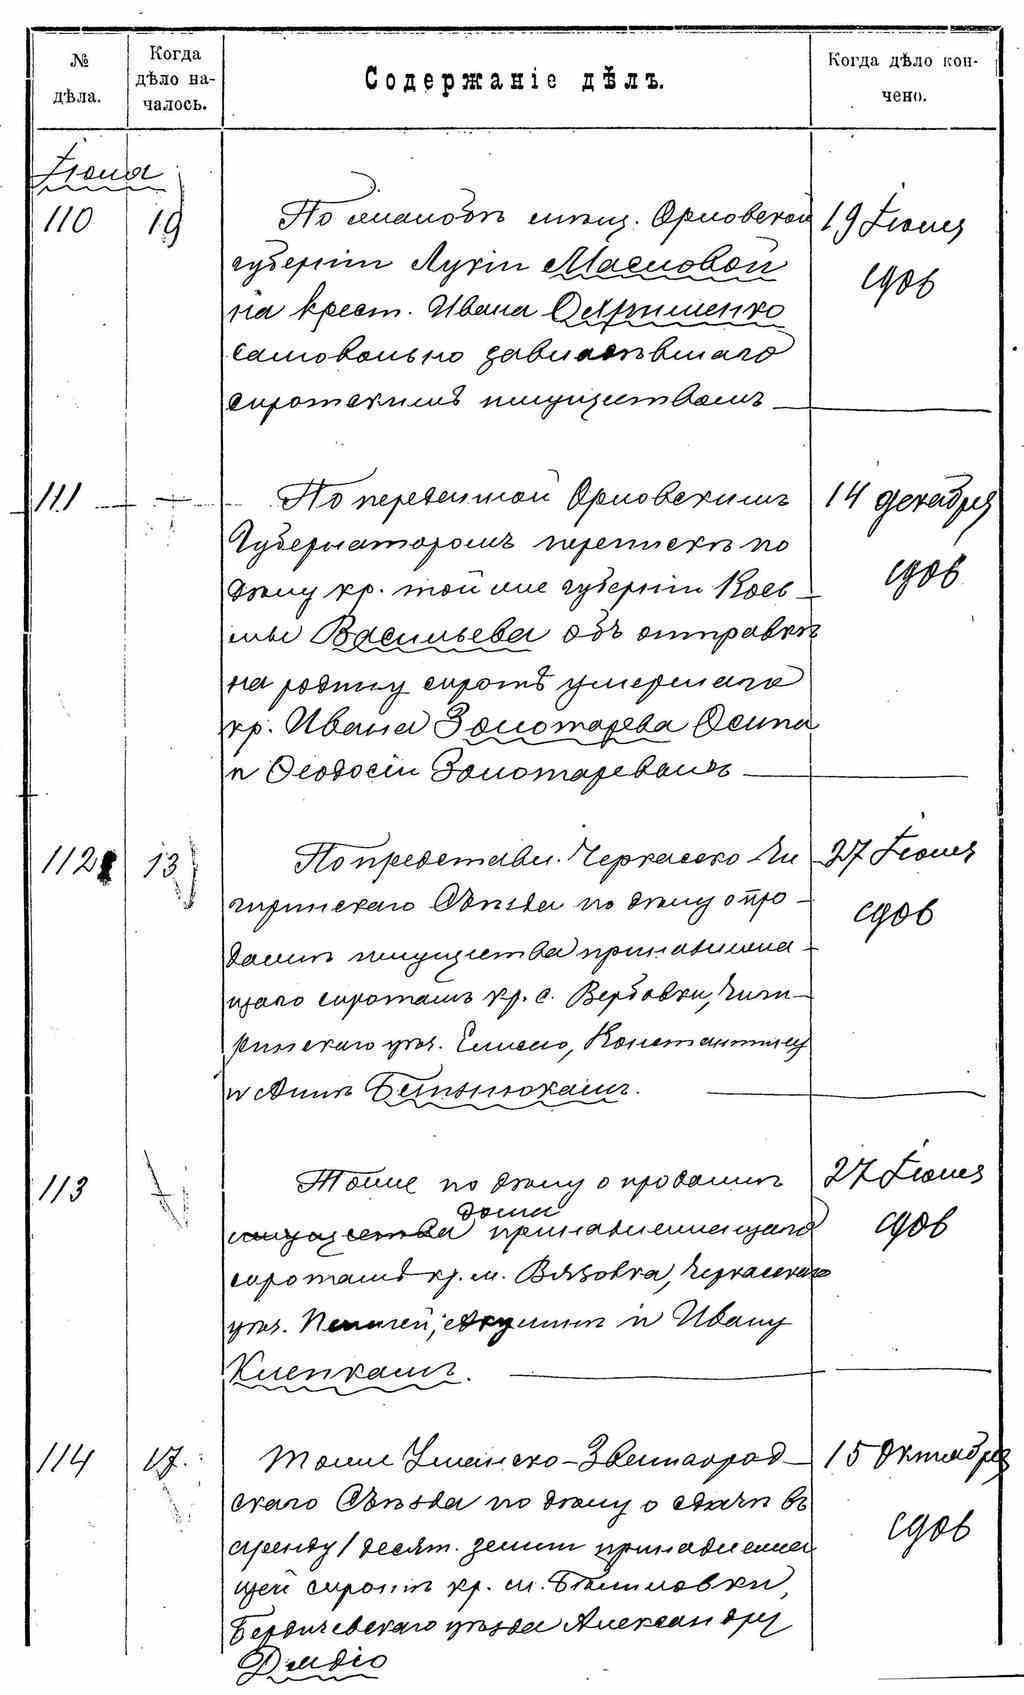 № дѣла.
Когда дѣло началось.
Содержаніе дѣлъ.
Когда дѣло кончено.
Іюня
110 19 По жалобѣ мѣщ. Орловской 19 Іюня
губерніи Лукіи Масловой сдов
на крест. Ивана
самовольно завладѣвшаго
сиротскимъ имуществомъ
111 По переданной Орловскимъ 14 декабря
Губернаторомъ перепискѣ по сдов
дѣлу кр. той же губерніи Козь-
мы Васильева объ отправкѣ
на родину сиротъ умершаго
кр. Ивана Золотарева Осипа
и Ѳеодосіи Золотаревыхъ
112 13 По представл. Черкасско-Чи 27 Іюня
гиринскаго Съѣзда по дѣлу о про- сдов
дажѣ имущества принадлежа-
щаго сиротамъ кр. с. Вербовки, Чиги-
ринскаго уѣз. Константину
и Аннѣ
113 Тоже по дѣлу о продажѣ 27 Іюня
дома
имущества принадлежащаго сдов
сиротамъ кр. м. Вязовка, Черкасскаго
уѣз. и Ивану
Клепкамъ.
114 17. Тоже Уманско-Звенигород- 15 Октября
скаго Съѣзда по дѣлу о сдачѣ въ сдов
аренду 1 десят. земли принадлежа
щей сиротѣ кр. м.
Бердичевскаго уѣзда Александру